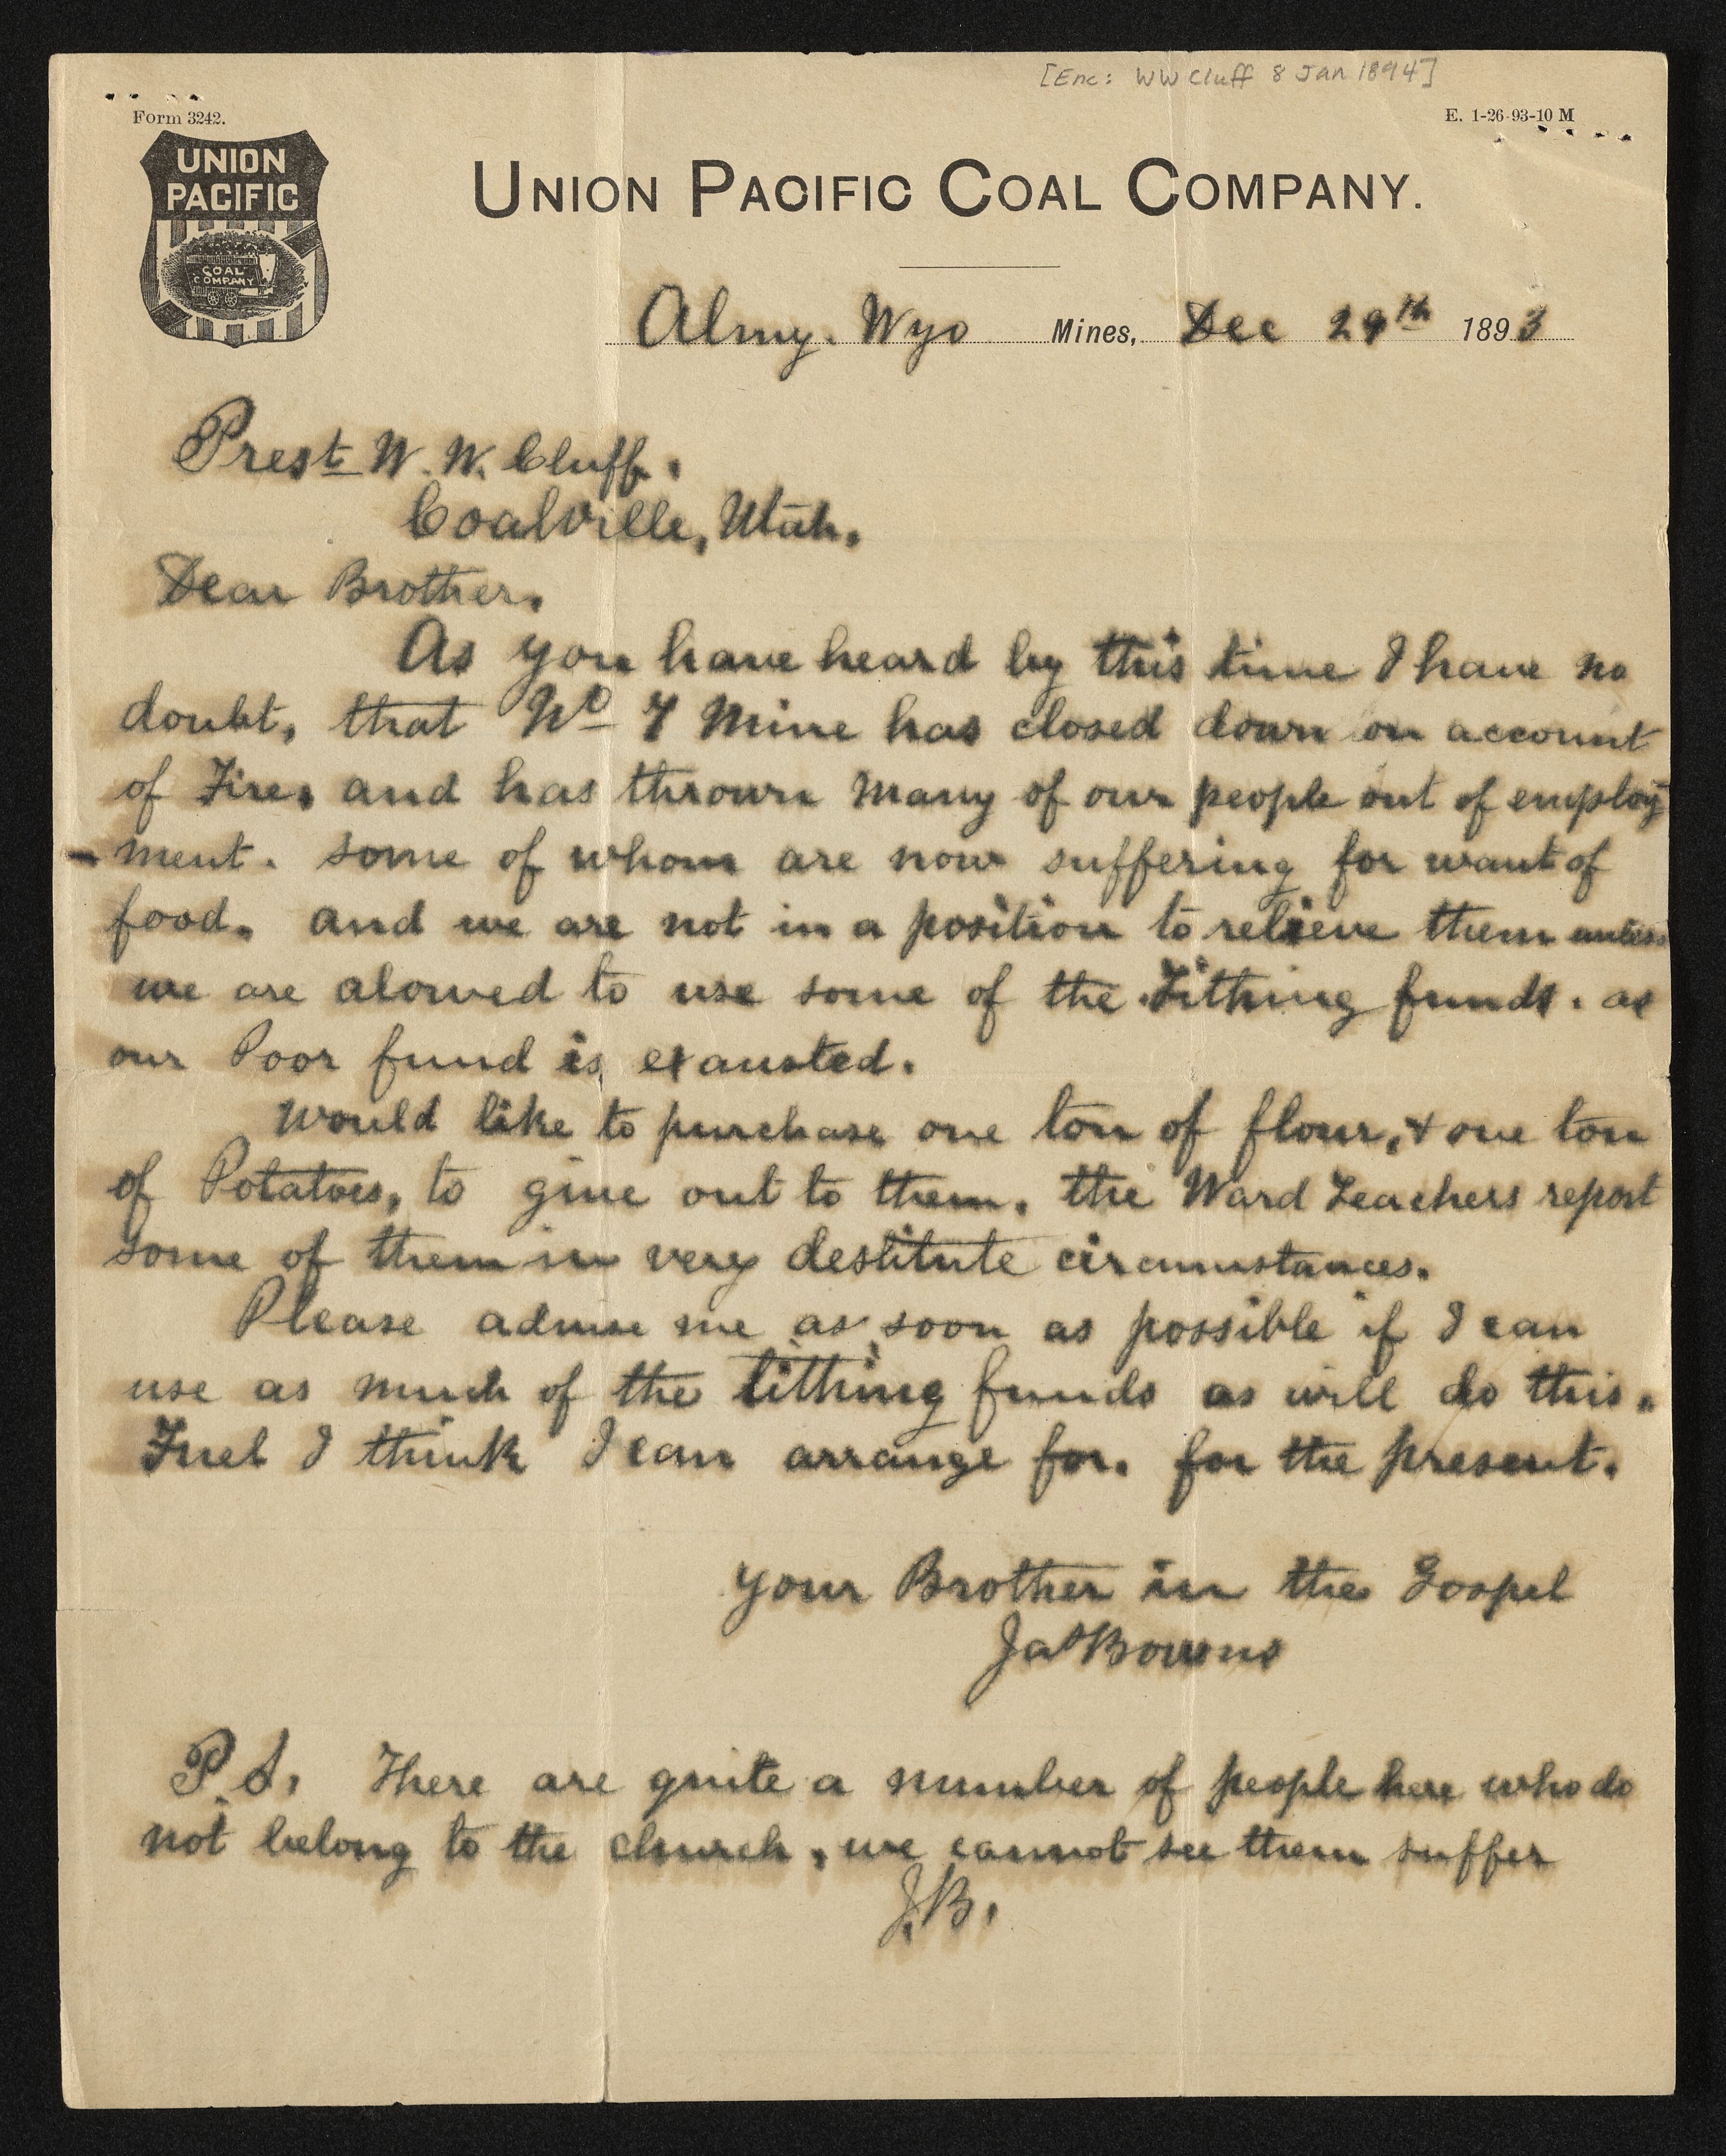 [Enc: WW Cluff 8 Jan 1894]
Form 3242.
E. 1-26-93-10 M
UNION
PACIFIC
COAL
COMPANY
UNION PACIFIC COAL COMPANY.
Almy. Wyo Mines, Dec 29th 1893
Prest W. W. Cluff.
Coalville, Utah.
Dear Brother.
As you have heard by this time I have no
doubt, that No 7 Mine has closed down on account
of Fire, and has thrown many of our people out of employ
-ment. some of whom are now suffering for want of
food. and we are not in a position to relieve them unless
we are alowed to use some of the Tithing funds. as
our Poor fund is exausted.
Would like to purchase one ton of flour, & one ton
of Potatoes, to give out to them. the Ward Teachers report
some of them in very destitute circumstances.
Please advise me as soon as possible if I can
use as much of the tithing funds as will do this.
Fuel I think I can arrange for. for the present.
your Brother in the Gospel
Jas Bowns
P.S. There are quite a number of people here who do
not belong to the church, we cannot see them suffer
J.B.